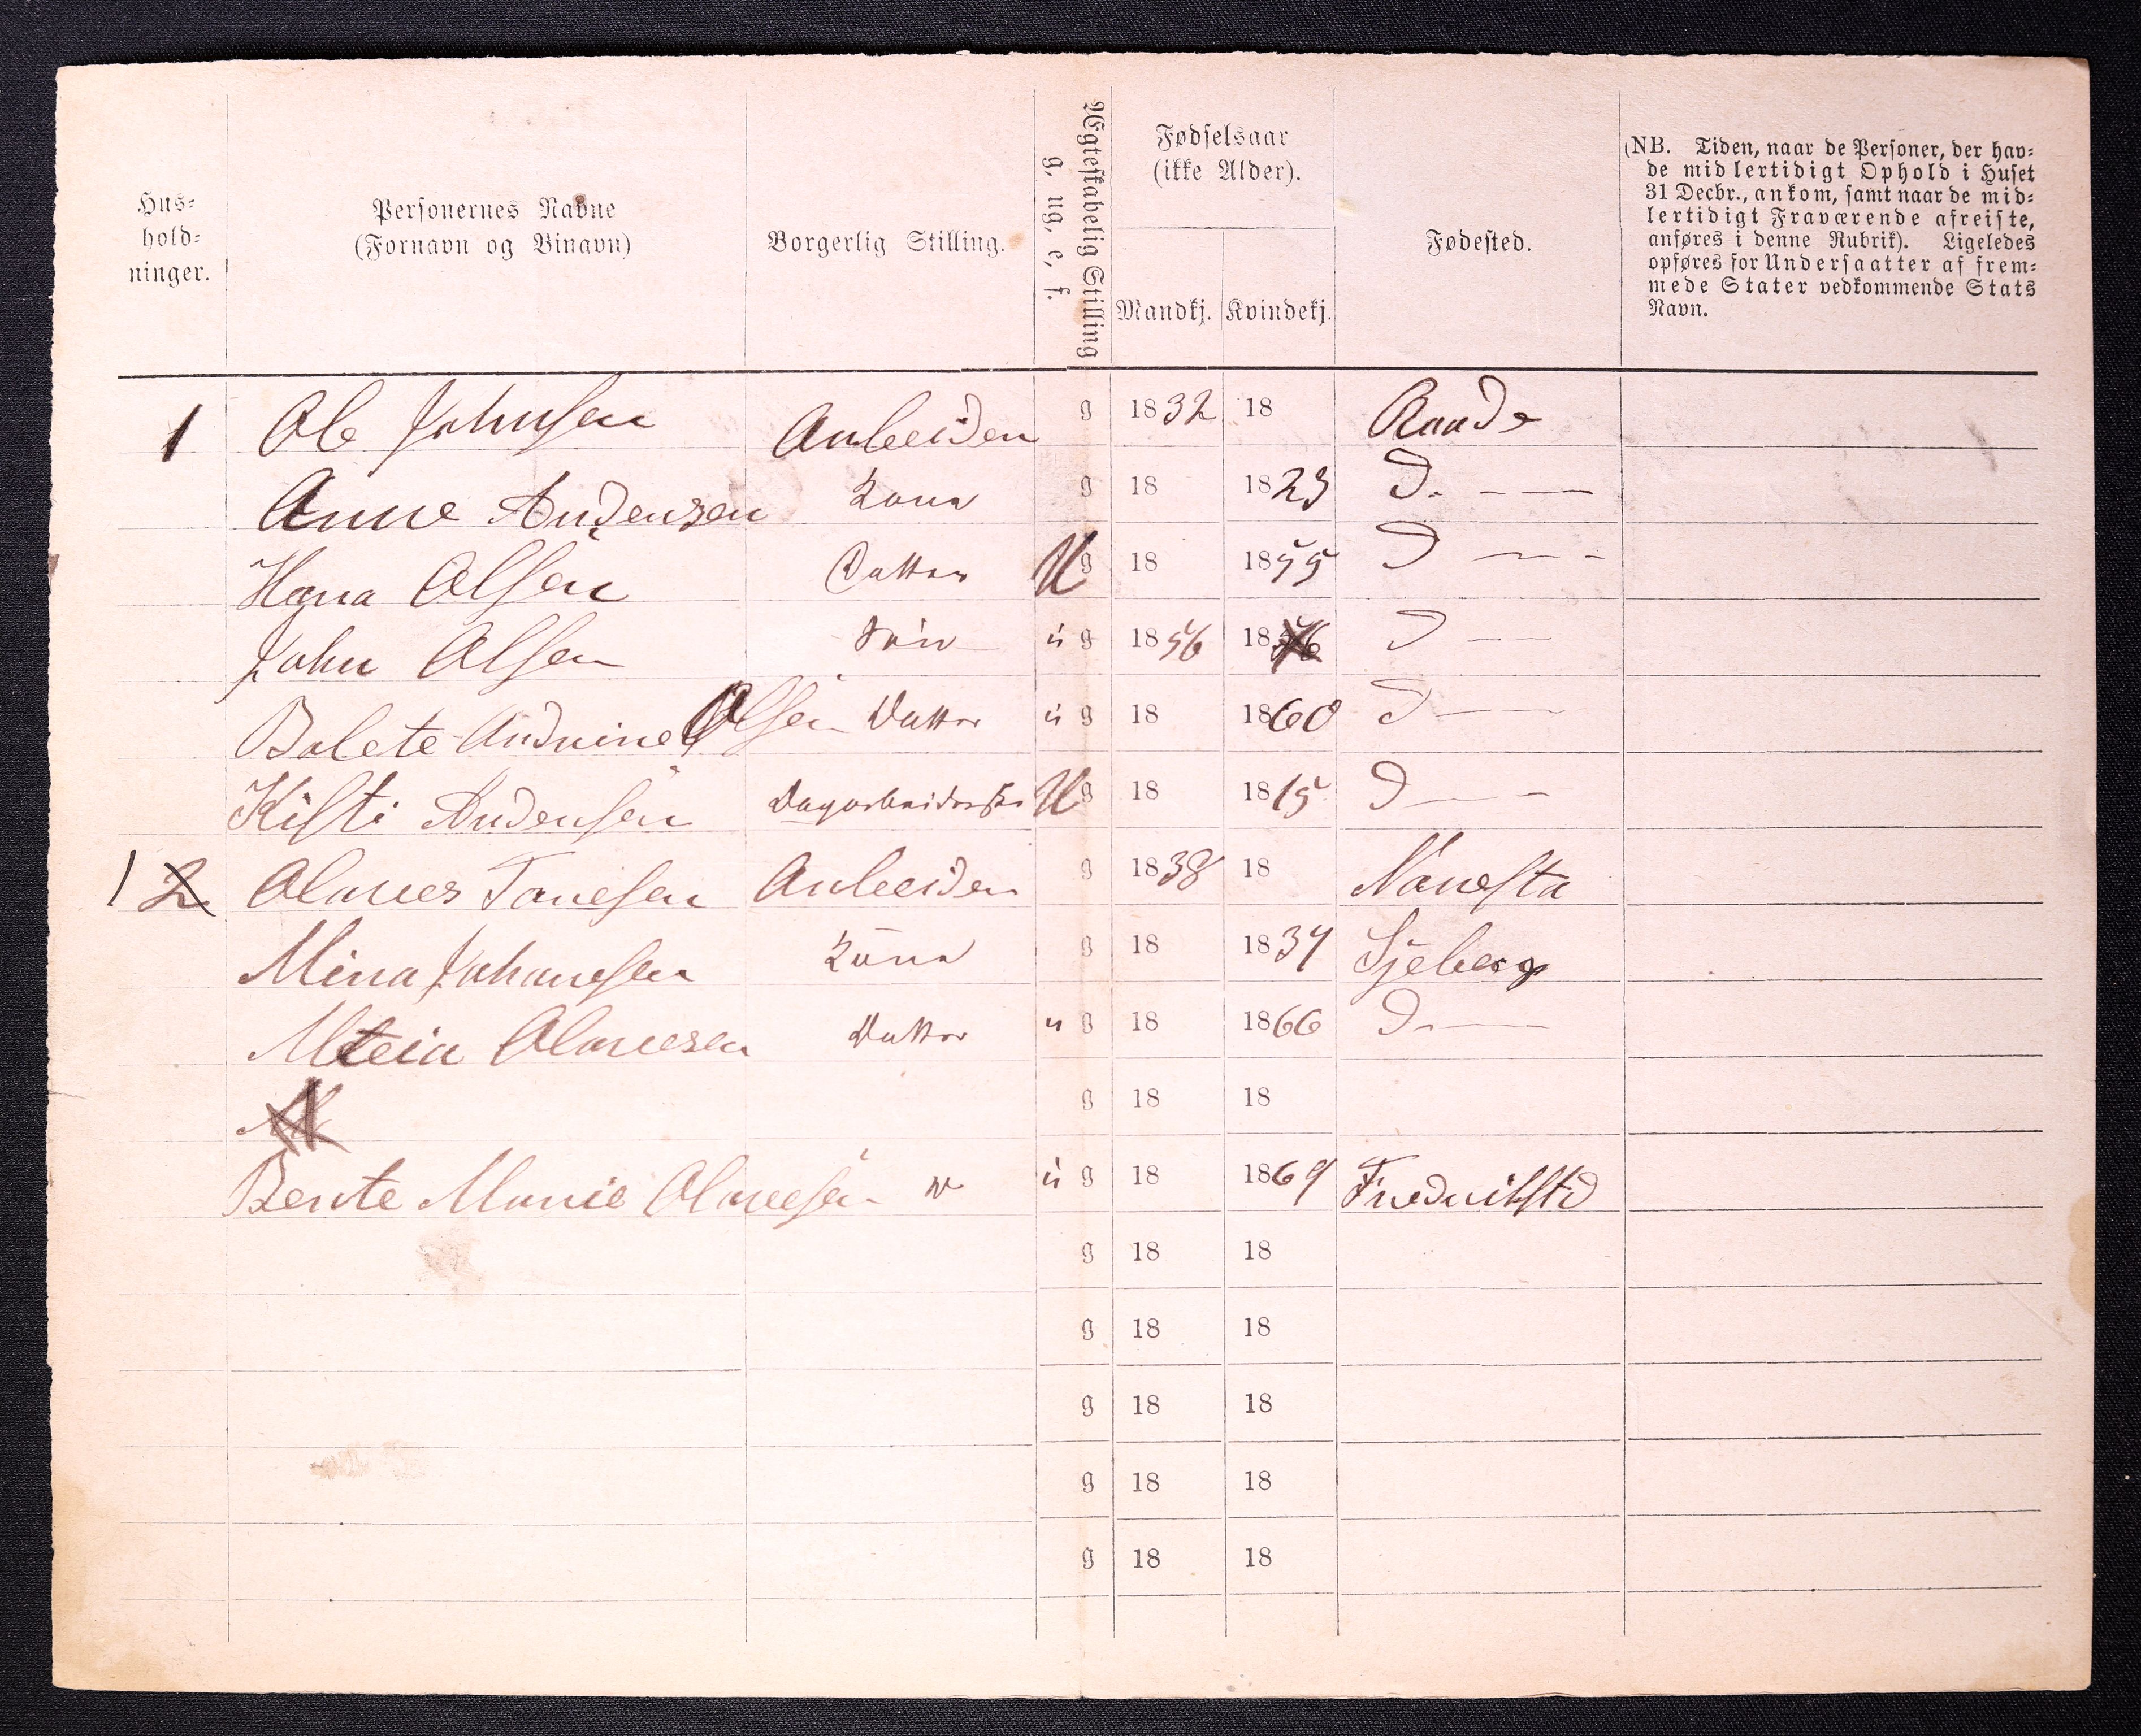 Hus-
hold-
ninger.
Personernes Navne
(Fornavn og Binavn)
Borgerlig Stilling.
Ægteskabelig Stilling
g, ug, e, f.
Fødselsaar
(ikke Alder).
Mandkj. Kvindekj.
Fødested.
(NB. Tiden, naar de Personer, der hav-
de midlertidigt Ophold i Huset
31 Decbr., ankom, samt naar de mid-
lertidigt Fraværende afreiste,
anføres i denne Rubrik). Ligeledes
opføres for Undersaatter af frem-
mede Stater vedkommende Stats
Navn.
1 Ole Johnsen Arbeider g 1832 18 Raade
Anne Andersen Kone g 18 1823 D. - — —
Hana Olsen Datter U g 18 1855 D — - -
John Olsen Søn u g 1856 18 D — —
Bolete Andrine Olsen Datter u g 18 1860 D — —
Kisti Andersen Dagarbeiderske U g 18 1815 D — —
1 2 Olaves Tonesen Arbeider g 1838 18
Mina Johanesen Kone g 18 1834 Sjeberg
Olavesen Datter u g 18 1866 D. —
g 18 18
Bernte Marie Olavesen u g 18 1869 Fredrikstd
g 18 18
g 18 18
g 18 18
g 18 18
g 18 18